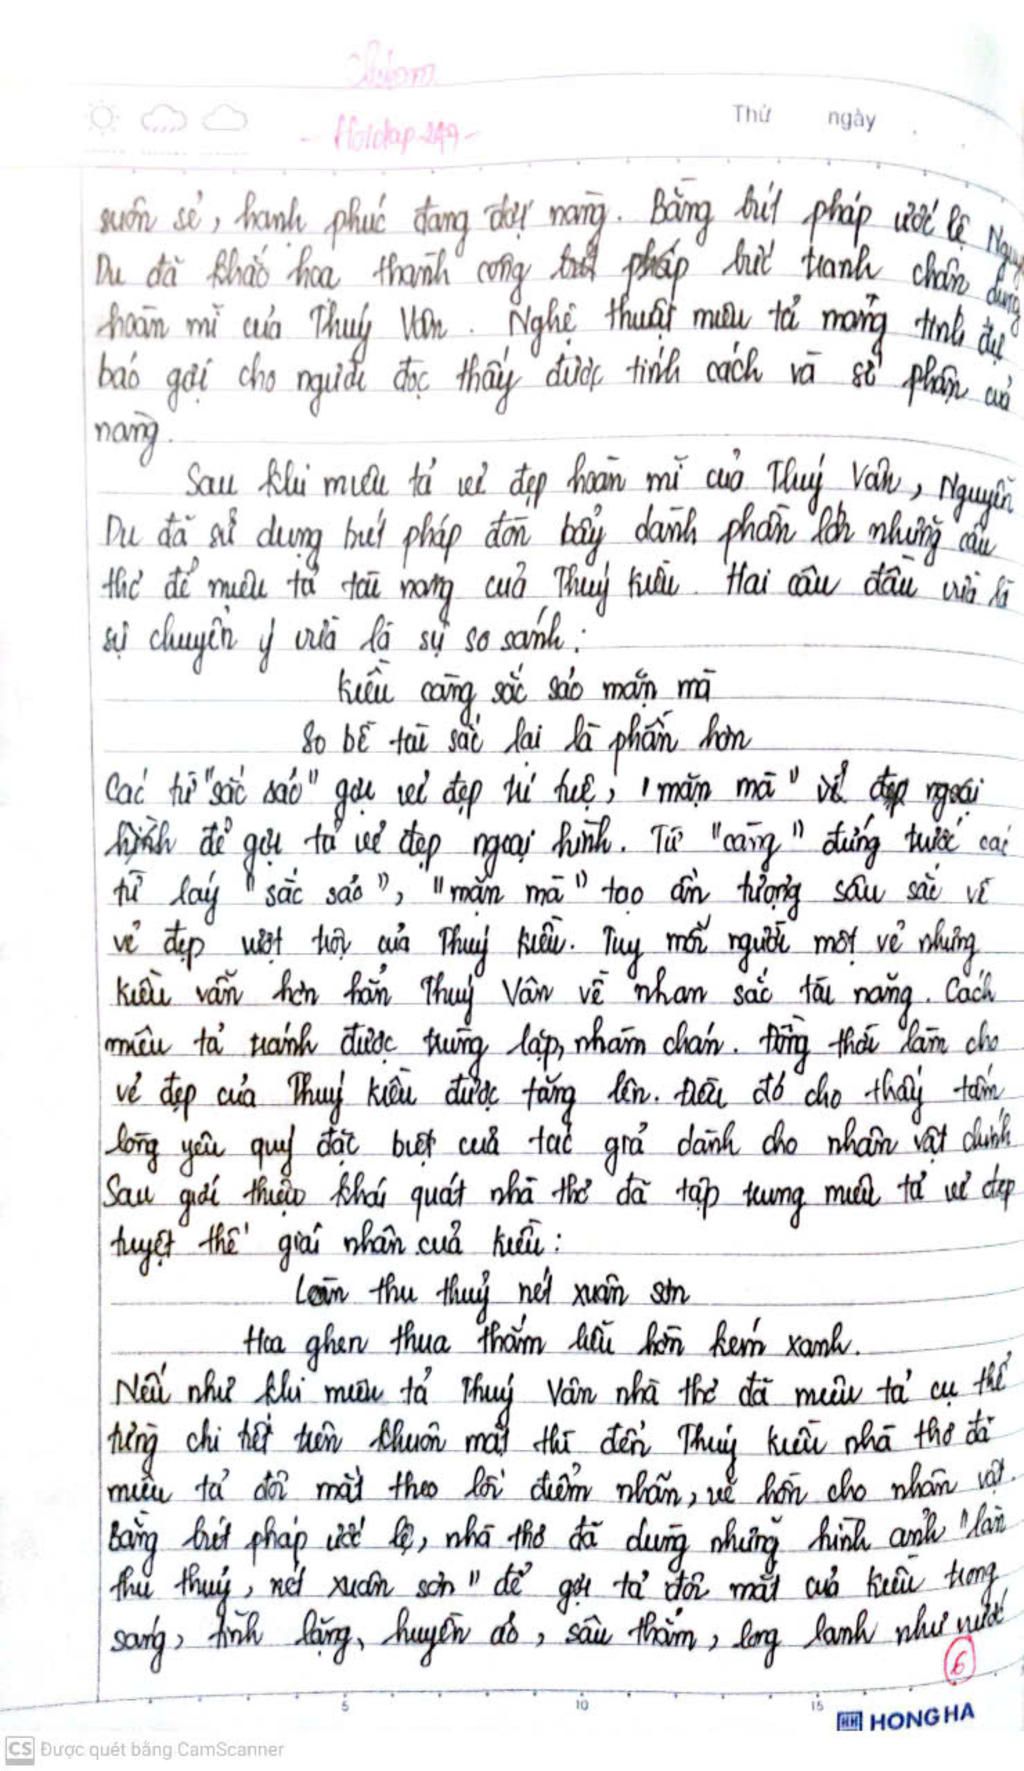 - Hoidap247 -
Thứ ngày
suôn sẻ, hạnh phúc đang đợi nàng. Bằng bút pháp ước lệ Nguyễn
Du đã khắc họa thành công bút pháp bức tranh chân dung
hoàn mĩ của Thuý Vân. Nghệ thuật miêu tả mang tính dự
báo gợi cho người đọc thấy được tính cách và số phận của
nàng.
Sau khi miêu tả vẻ đẹp hoàn mĩ của Thuý Vân, Nguyễn
Du đã sử dụng bút pháp đòn bẩy dành phần lớn những câu
thơ để miêu tả tài năng của Thuý Kiều. Hai câu đầu vừa là
sự chuyển ý vừa là sự so sánh:
Kiều càng sắc sảo mặn mà
So bề tài sắc lại là phần hơn
Các từ "sắc sảo" gợi vẻ đẹp trí tuệ, "mặn mà" vẻ đẹp ngoại
hình để gợi tả vẻ đẹp ngoại hình. Từ "càng" đứng trước các
từ láy "sắc sảo", "mặn mà" tạo ấn tượng sâu sắc về
vẻ đẹp vượt trội của Thuý Kiều. Tuy mỗi người một vẻ nhưng
Kiều vẫn hơn hẳn Thuý Vân về nhan sắc tài năng. Cách
miêu tả tránh được trùng lặp, nhàm chán. Đồng thời làm cho
vẻ đẹp của Thuý Kiều được tăng lên. Điều đó cho thấy tấm
lòng yêu quý đặc biệt của tác giả dành cho nhân vật chính
Sau giới thiệu khái quát nhà thơ đã tập trung miêu tả vẻ đẹp
tuyệt thế giai nhân của Kiều:
Làn thu thuỷ nét xuân sơn
Hoa ghen thua thắm liễu hờn kém xanh.
Nếu như khi miêu tả Thuý Vân nhà thơ đã miêu tả cụ thể
từng chi tiết trên khuôn mặt thì đến Thuý Kiều nhà thơ đã
miêu tả đôi mắt theo lối điểm nhãn, vẽ hồn cho nhân vật
Bằng bút pháp ước lệ, nhà thơ đã dùng những hình ảnh "làn
thu thuỷ, nét xuân sơn" để gợi tả đôi mắt của Kiều trong
sáng, tĩnh lặng, huyền ảo, sâu thẳm, long lanh như nước
6
5 10 15
HH HONG HA
CS Được quét bằng CamScanner